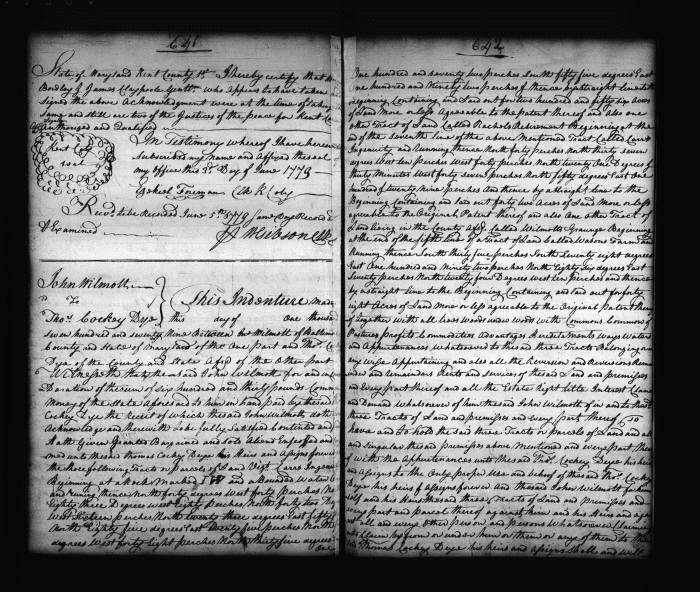 641
State of Maryland Kent County Sct. I hereby certify that
Bordley & James Claypoole Gentn. who appears to have taken
signed the above Acknowledgment were at the time of taking
same and still are two of the Justices of the peace for Kent Co
Authorized and Qualified
Kent Coty
Seal
In Testimony whereof I have hereunto
Subscribed my Name and affixed the seal
my Office this 3d Day of June 1779
Ezekiel Foreman Clk K Coty
Recd. to be Recorded June 3d 1779 same Day Record
& Examined
Gibson Clk
John Wilmott
To
Thos. Cockey Dye
This Indenture made
this day of One thousand
seven hundred and seventy Nine Between John Wilmott of Baltimore
County and State of Maryland of the One part and Thos. Co
Dye of the County and State Afsd. of the Other part
Witnesseth that he the said John Wilmott for and in
the sum of Six hundred and thirty pounds Common
Money of the State aforesaid to him in hand paid by the said
Cockey Dye the Receit of which the said John Wilmott doth
Acknowledge and therewith fully Satisfied Contented and
Hath Given Granted Bargained and Sold Aliend Enfeoffed and
unto the said Thomas Cockey Dye his Heirs and assigns forever
the three following Tracts or parcels of Land Vizt.
Beginning at a Rock Marked I W and a Bounded Water
and runing thence North forty degrees West forty perches No
Eighty three Degrees West Eighty perches North
West Sixteen perches North twenty three degrees East fifty
North Eighty five degrees East Twenty five perches North
degrees West forty Eight perches North thirty five degrees
One
642
One hundred and seventy two perches South fifty five degrees East
One hundred and Ninety two perches & thence by a straight line to the
beginning Containing and Laid out for two hundred and fifty six Acres
of Land More or less Agreeable to the patent thereof and also one
other Tract of Land Called Rachels Retirement Beginning at the
end of the seventh line of the above Mentioned Tract Called
Ingenuity and Running thence North forty perches North thirty seven
degrees West ten perches West forty perches North twenty One Degrees &
thirty Minutes West forty seven perches North fifty degrees East One
hundred & twenty Nine perches and thence by a straight Line to the
Beginning Containing and laid out forty two Acres of Land More or less
agreeable to the Original Patent thereof and also One other Tract of
Land lieing in the County Afsd. Called Wilmotts Beginning
at the end of the fifth line of a tract of Land Called Masons Farm and
Running thence South thirty five perches South Seventy eight degrees
East One hundred and Ninety two perches North Eighty Six degrees East
Twenty perches North twenty four Degrees West ten perches and thence
by a straight line to the Beginning Containing and laid out for forty
eight Acres of Land More or less agreeable to the Original Patent thereof
Together with all Woods under woods with Commons Common of
Pastures profits Commodities Advantages Hereditaments ways Waters
and Appurtenances Whatsoever to the said three Tracts Belonging or in
any wise Appertaining and also all the Reversion and Reversions
and remainders Rents and services of the said Land and premisses
and Every part thereof and all the Estate right title Interest Claim
and Demand whatsoever of him the said John Wilmott of in and to the said
three Tracts of Land and premisses and every part thereof To
have and to hold the said three Tracts or parcels of Land and all
and singular the said premisses above Mentioned and every part there
of with the Appurtenances unto the said Thos. Cockey Deye his heirs
and assigns to the Only proper Use and behoof of the said Thos. Cockey
Deye his heirs & assigns forever And the said John Wilmott for him
self and his Heirs the said three Tracts of Land and premisses and
every part and parcel thereof against him and his Heirs and against
all and every Other person and persons Whatsoever Claiming
to Claim by from or under him or them or any of them to the
said Thomas Cockey Deye his heirs and assigns Shall and will